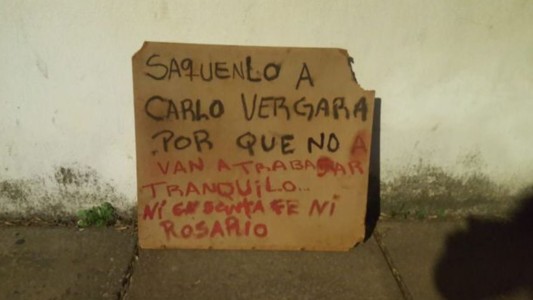 SAQUENLO A
CARLO VERGARA
POR QUE NO A
VAN A TRABAJAR
TRANQUILO...
Ni EN SANTA FE Ni
ROSARIO